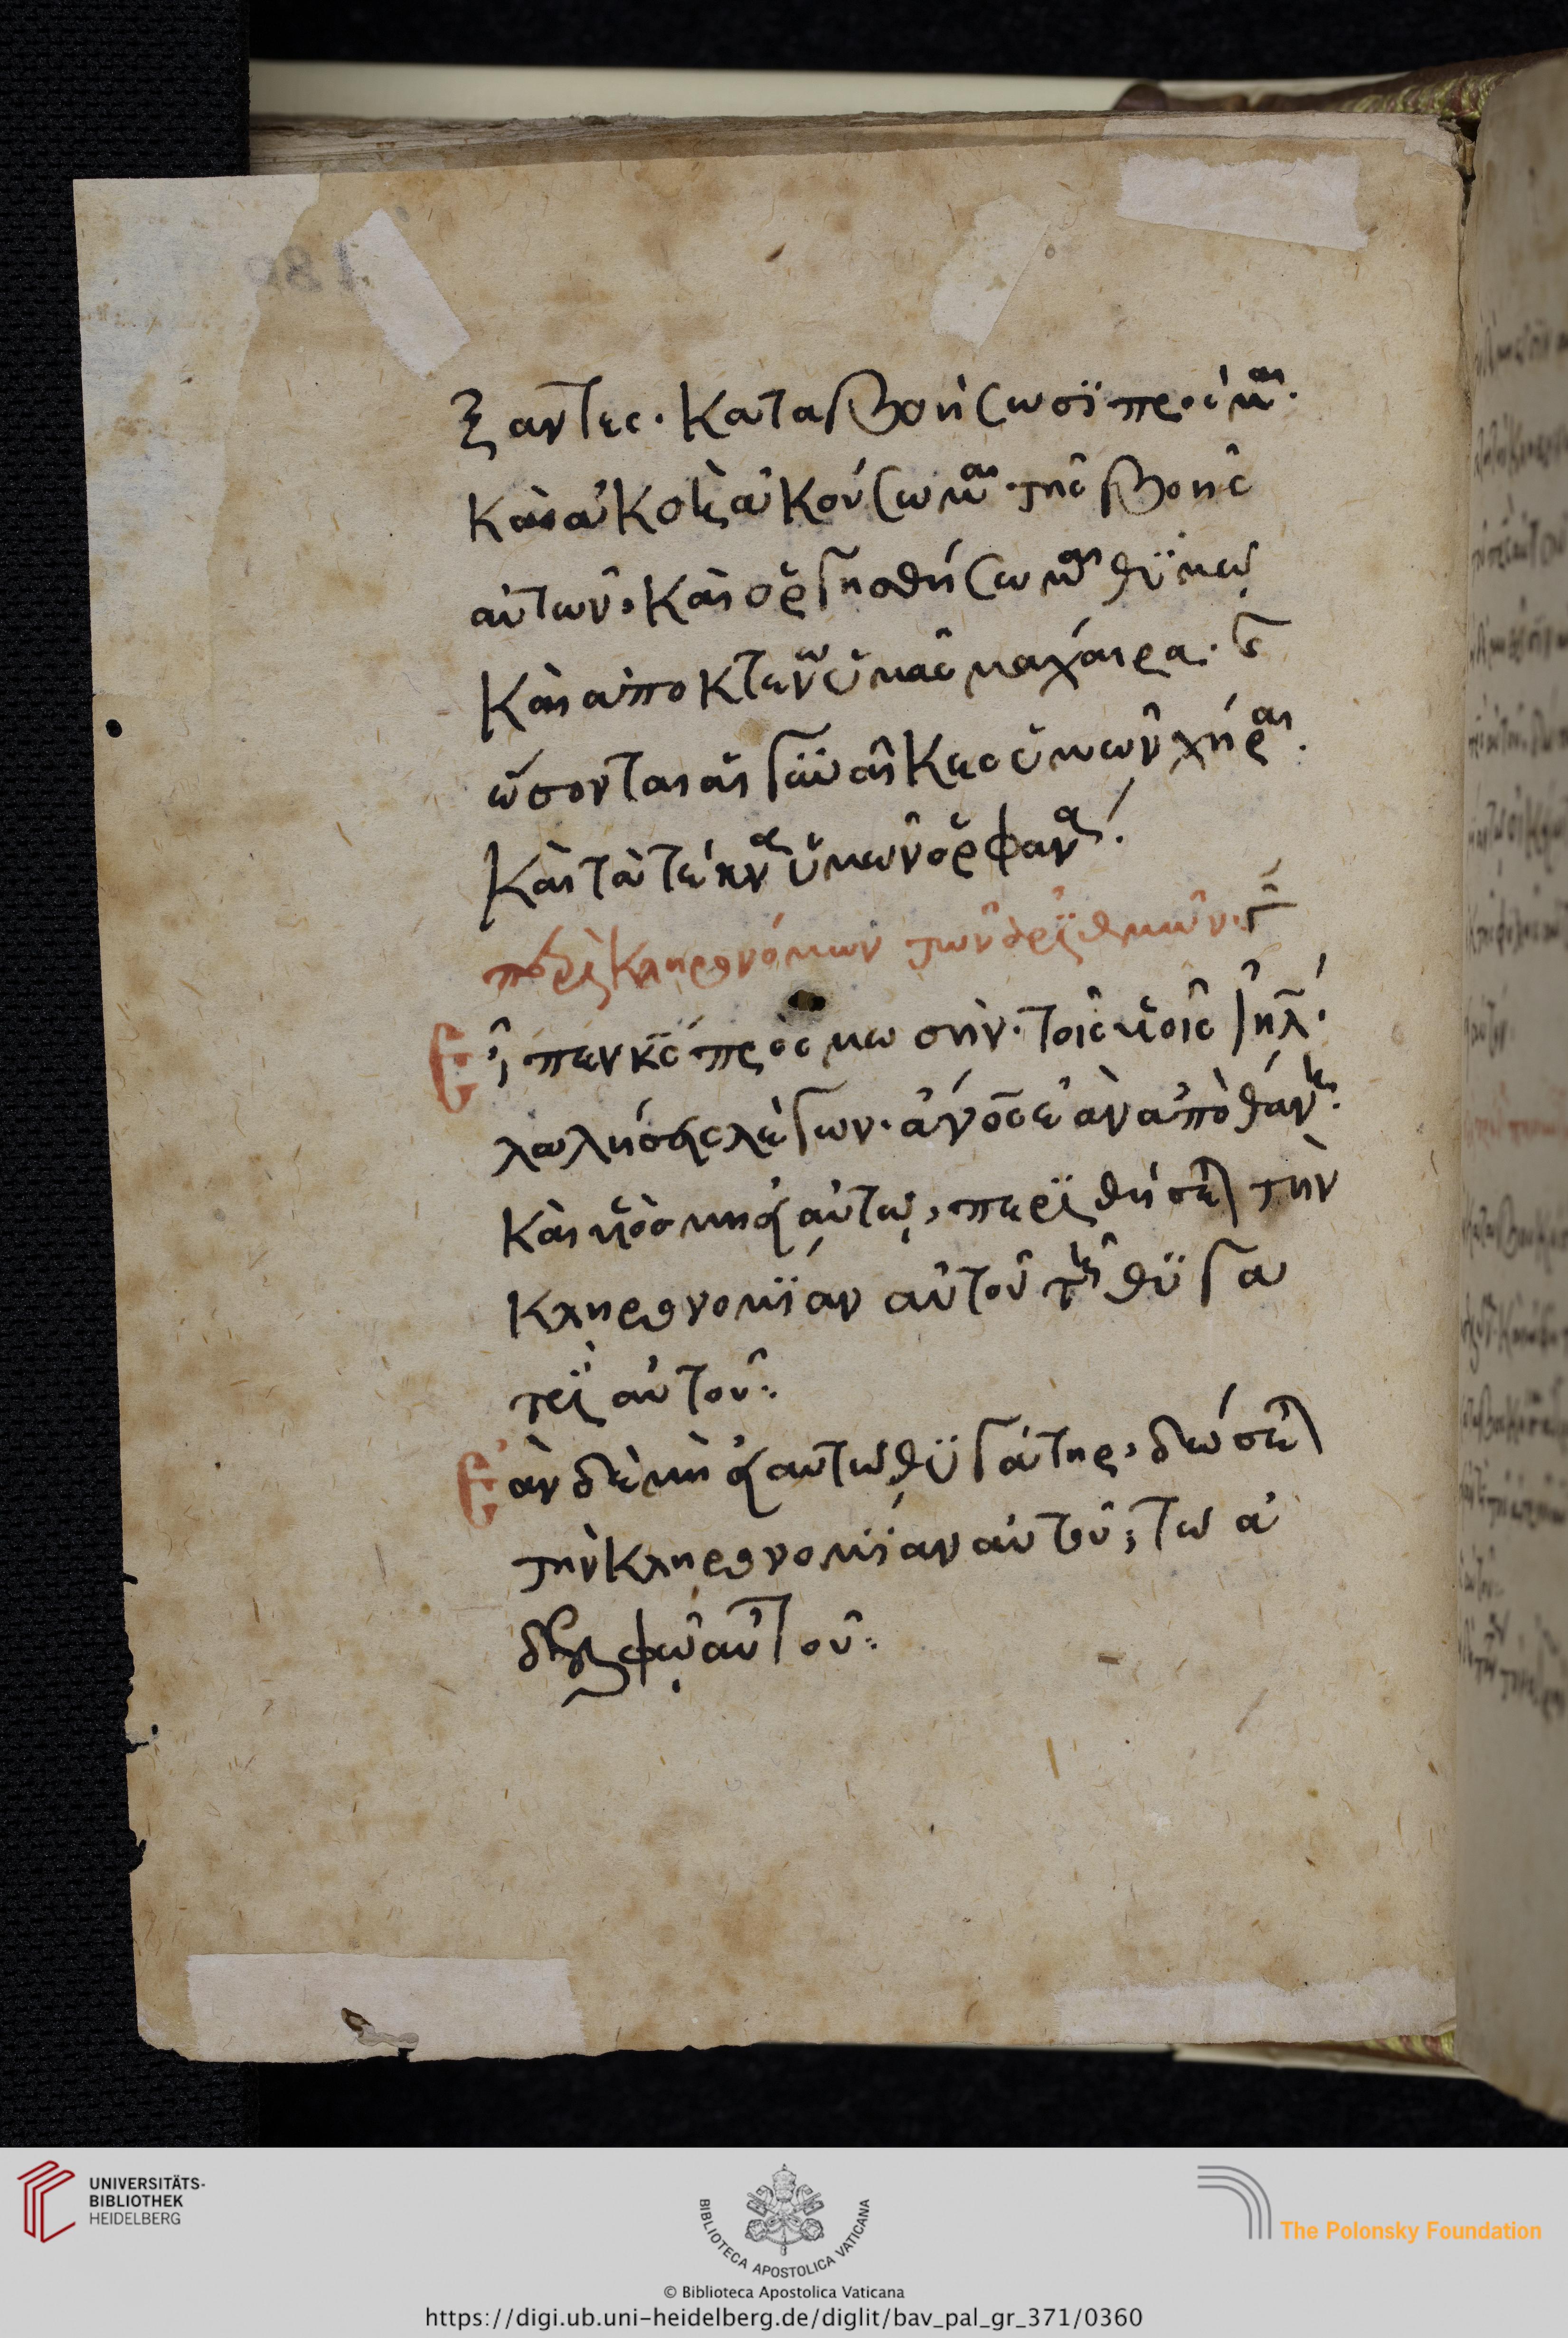 ξαντες· καταβοήσωσϊ πρός μαι·
καὶ ἀκοῆ ἀκούσωμαι· τῆς βοῆς
αὐτῶν· καὶ ὀργησθήσωμαι θϋμῶ
καὶ ἀποκτενῶ ὑμᾶς μαχάιρα·
ἔσονται αἱ γϋναῖκες ὑμῶν χήραι·
καὶ τὰ τέκνα ὑμῶν ὀρφανά·
περὶ κληρονόμων τῶν ἀρϊθμῶν· γ̅
Εἶπεν κ̅ς̅ πρὸς μωσὴν· τοῖς υἱοῖς ι̅η̅λ̅·
λαλήσεις λέγων· α̅ν̅ο̅ς̅ ἐὰν ἀποθάνη·
καὶ υἱὸσ μὴ εἶ αὐτῶ, περϊθήσει τὴν
κληρονομϊάν αὐτοῦ τῆ θϋγα
τρϊ αὐτοῦ:
Ἐὰν δὲ μὴ εἶ αὐτῶ θϋγάτηρ, δώσει
τὴν κληρονομϊάν αὐτοῦ, τῶ ἀ
δελφῶ αὐτοῦ:
UNIVERSITÄTS-
BIBLIOTHEK
HEIDELBERG
BIBLIOTECA APOSTOLICA VATICANA
The Polonsky Foundation
© Biblioteca Apostolica Vaticana
https://digi.ub.uni-heidelberg.de/diglit/bav_pal_gr_371/0360